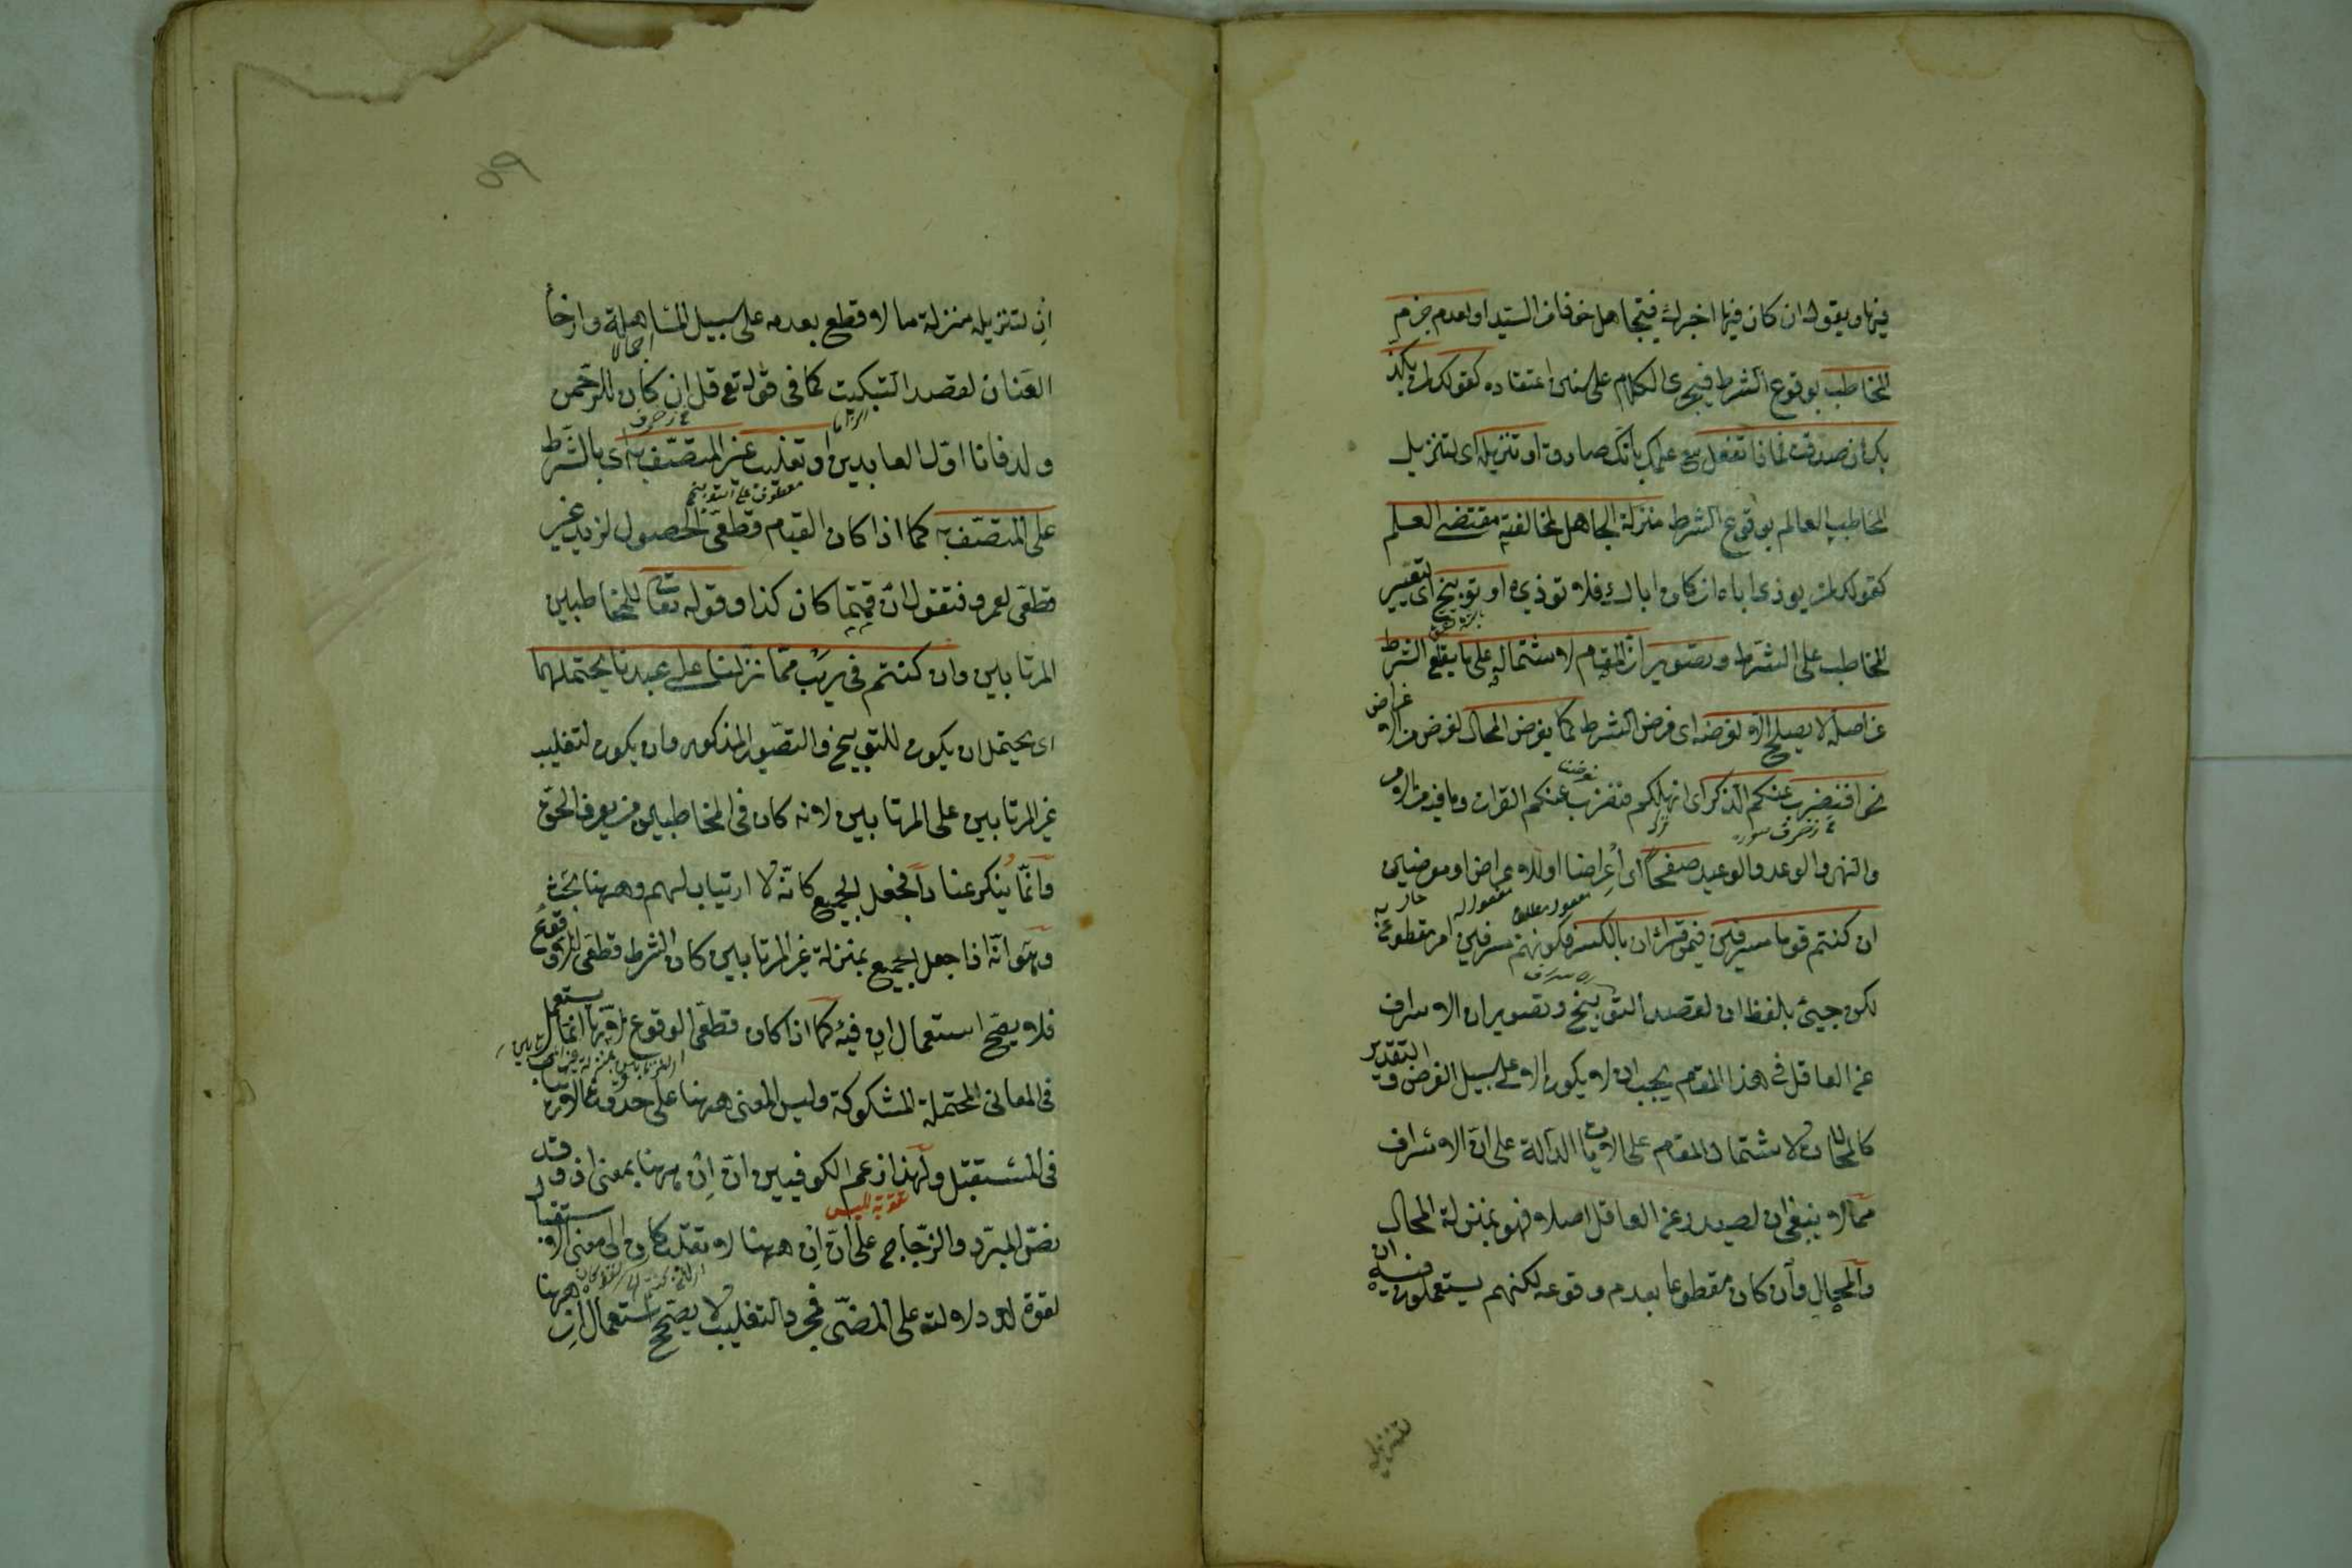 فيها ويقول ان كان فيها اخبرك فيتجاهل خوفا من السيد او لعدم جزم
المخاطب بوقوع الشرط فيجري الكلام على سنن اعتقاده كقولك لمن يكذ
بك ان صدقت فماذا تفعل مع علمك بانك صادق او تنزيله اى لتنزيل
المخاطب العالم بوقوع الشرط منزلة الجاهل لمخالفته مقتضى العلم
كقولك لمن يوذى اباه ان كان اباك فلا توذيه او توبيخ اى لتعيير
المخاطب على الشرط وتصوير ان المقام لاشتماله على ما يقلع الشرط
عن اصله لا يصلح الا لفرضه اى فرض الشرط كما يفرض المحال لغرض من الاغراض
نحو افنضرب عنكم الذكر اى انهملكم فنضرب عنكم القران وما فيه من الامر
والنهى والوعد والوعيد صفحا اى اعراضا او للاعراض او معرضين
ان كنتم قوما مسرفين فيمن قرأ ان بالكسر فكونهم مسرفين امر مقطوع به
لكن جيئ بلفظ ان لقصد التوبيخ وتصوير ان الاسراف
من العاقل فى هذا المقام يجب ان لا يكون الا على سبيل الفرض والتقدير
كالمحالات لاشتمال المقام على الايات الدالة على ان الاسراف
مما لا ينبغى ان يصدر عن العاقل اصلا فهو بمنزلة المحال
والمحال وان كان مقطوعا بعدم وقوعه لكنهم يستعملون فيه ان
لتنزيله
٥٩
ان لتنزيله منزلة ما لا قطع بعدمه على سبيل المساهلة وارخا
العنان لقصد التبكيت كما فى قوله تع قل ان كان للرحمن
ولد فانا اول العابدين او تغليب غير المتصف به اى بالشرط
معطوف على التوبيخ
على المتصف به كما اذا كان القيام قطعى الحصول لزيد غير
قطعى لعمرو فتقول ان قمتما كان كذا وقوله تعا للمخاطبين
المرتابين وان كنتم فى ريب مما نزلنا على عبدنا يحتملهما
اى يحتمل ان يكون للتوبيخ والتصوير المذكور وان يكون لتغليب
غير المرتابين على المرتابين لانه كان فى المخاطبين من يعرف الحق
وانما ينكر عنادا فجعل الجميع كانه لا ارتياب لهم وههنا بحث
وهو انه اذا جعل الجميع بمنزلة غير المرتابين كان الشرط قطعى اللاوقوع
فلا يصح استعمال ان فيه كما اذا كان قطعى الوقوع لانها انما يستعمل
فى المعانى المحتملة المشكوكة وليس المعنى ههنا على حدوث الارتياب
فى المستقبل ولهذا زعم الكوفيين ان ان ههنا بمعنى اذ وقد
نص المبرد والزجاج على ان ان ههنا لا تقلب كان الى معنى الاستقبال
لقوة دلالته على المضى فمجرد التغليب لا يصحح استعمال ان ههنا